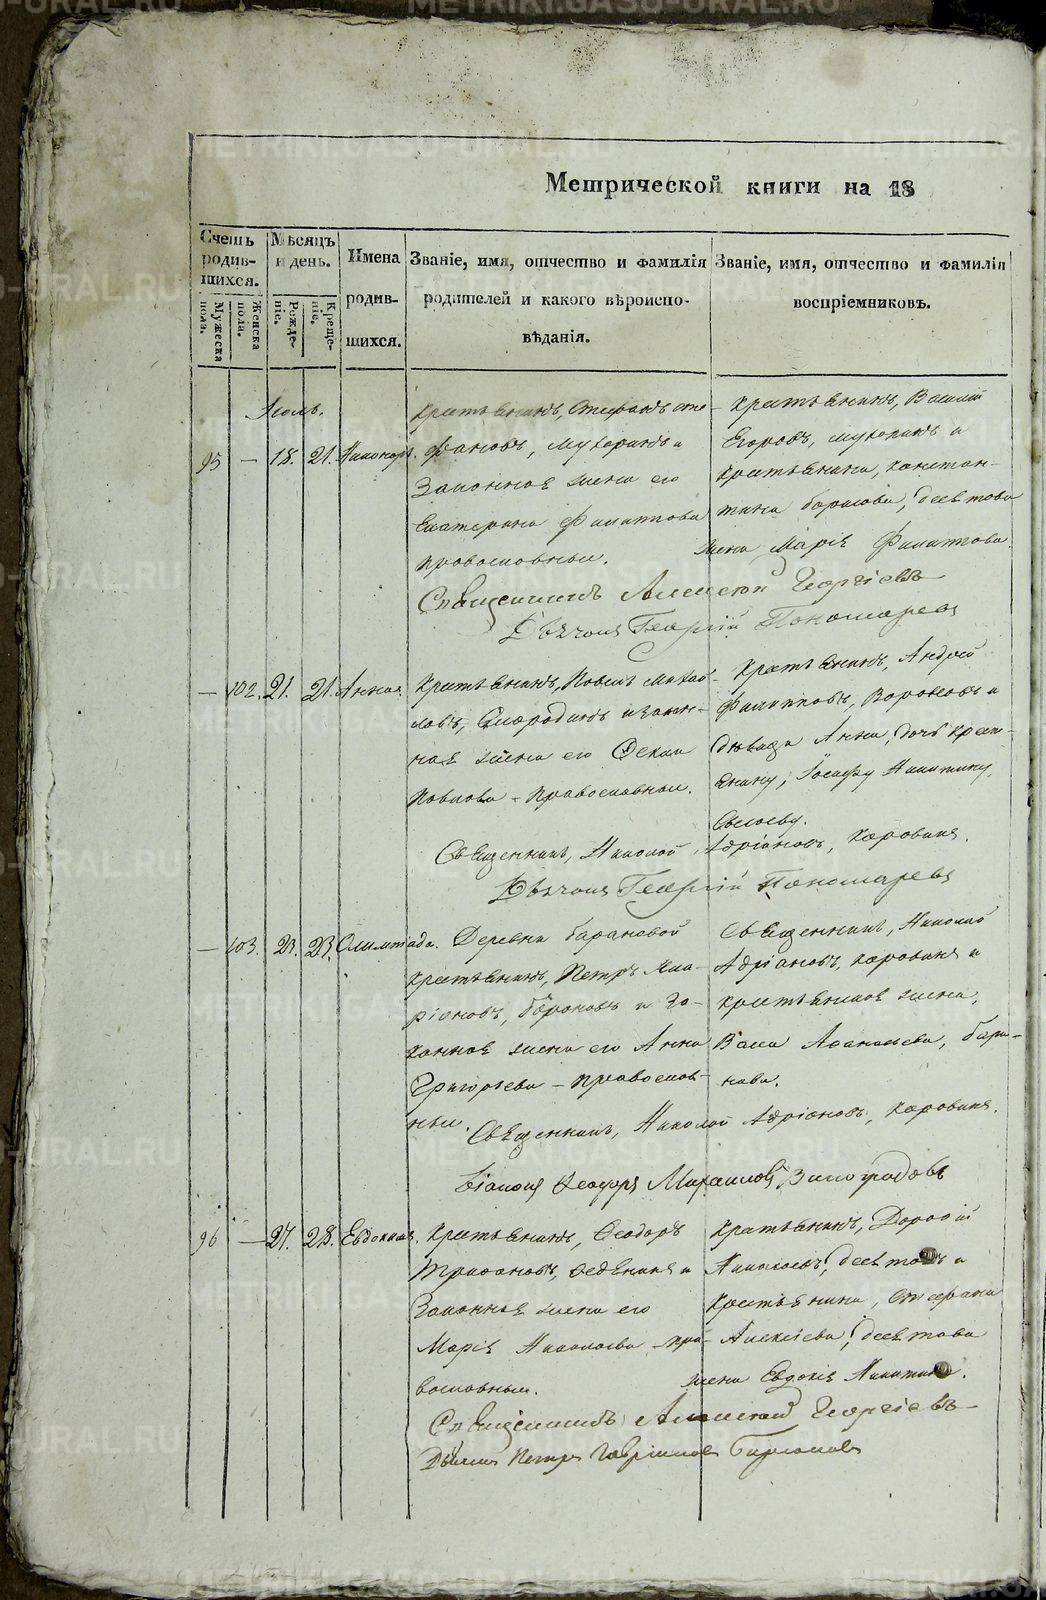 METRIKI.GASO-URAL.RU
Метрической книги на 18
Счетъ родив-шихся.
Мужеска пола.
Женска пола.
Мѣсяцъ и день.
Рожде-ніе.
Креще-ніе.
Имена родив-шихся.
Званіе, имя, отчество и фамилія
родителей и какого вѣроиспо-
вѣданія.
Званіе, имя, отчество и фамилія
воспріемниковъ.
Іюль.
95 — 18. 21. Никаноръ.
Крестьянинъ, Стефанъ Сте-
фановъ, Мухоринъ и
Законная жена его
Екатерина Филиппова
православныи.
Крестьянинъ, Василій
Егоровъ, и
Крестьянина, Констан-
тина Борисова,
жена Марія Филиппова.
Священникъ Алексей Георгіевъ
Дьячокъ Георгій Пономаревъ
— 102. 21. 21. Анна.
Крестьянинъ, Павелъ Михай-
ловъ, Смородинъ и закон-
ная жена его Фекла
Павлова - Православныи.
Крестьянинъ, Андрей
Филипповъ, и
дѣвица Анна, дочь крест-
янину, Іосифу Никитину,
Священникъ, Николай Адріановъ, Коровинъ.
Дьячокъ Георгій Пономаревъ
— 103. 23. 23. Олимпіада.
Деревни Барановой
Крестьянинъ, Петръ Ила-
ріоновъ, Барановъ и за-
конная жена его Анна
Григорьева - православ-
ныи.
Священникъ, Николай
Адріановъ, Коровинъ и
крестьянская жена,
Васса Афанасьева, Бара-
нова.
Священникъ, Николай Адріановъ, Коровинъ.
Діаконъ Феодоръ Виноградовъ
96 — 27. 28. Евдокимъ.
Крестьянинъ, Феодоръ
Трифоновъ, и
Законная жена его
Марія Николаева пра-
вославныи.
Крестьянинъ, Дорофій
и
Крестьянина, Стефана
Алексіева,
жена Евдокія
Священникъ Алексей Георгіевъ
Петръ Гавріиловъ